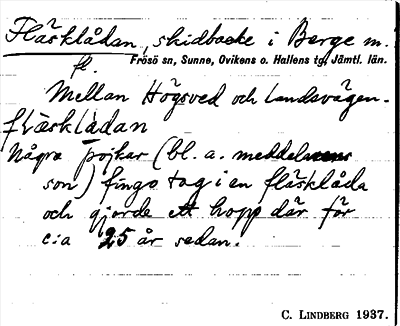 Fläsklådan, skidbacke i Berge m.
fl.
Frösö sn, Sunne, Ovikens o. Hallens tg, Jämtl. län.
Mellan Högsved och landsvägen.
fläsklådan
Några pojkar (bl. a. meddelarens
son) fingo tag i en fläsklåda
och gjorde ett hopp där för
c:a 25 år sedan.
C. LINDBERG 1937.